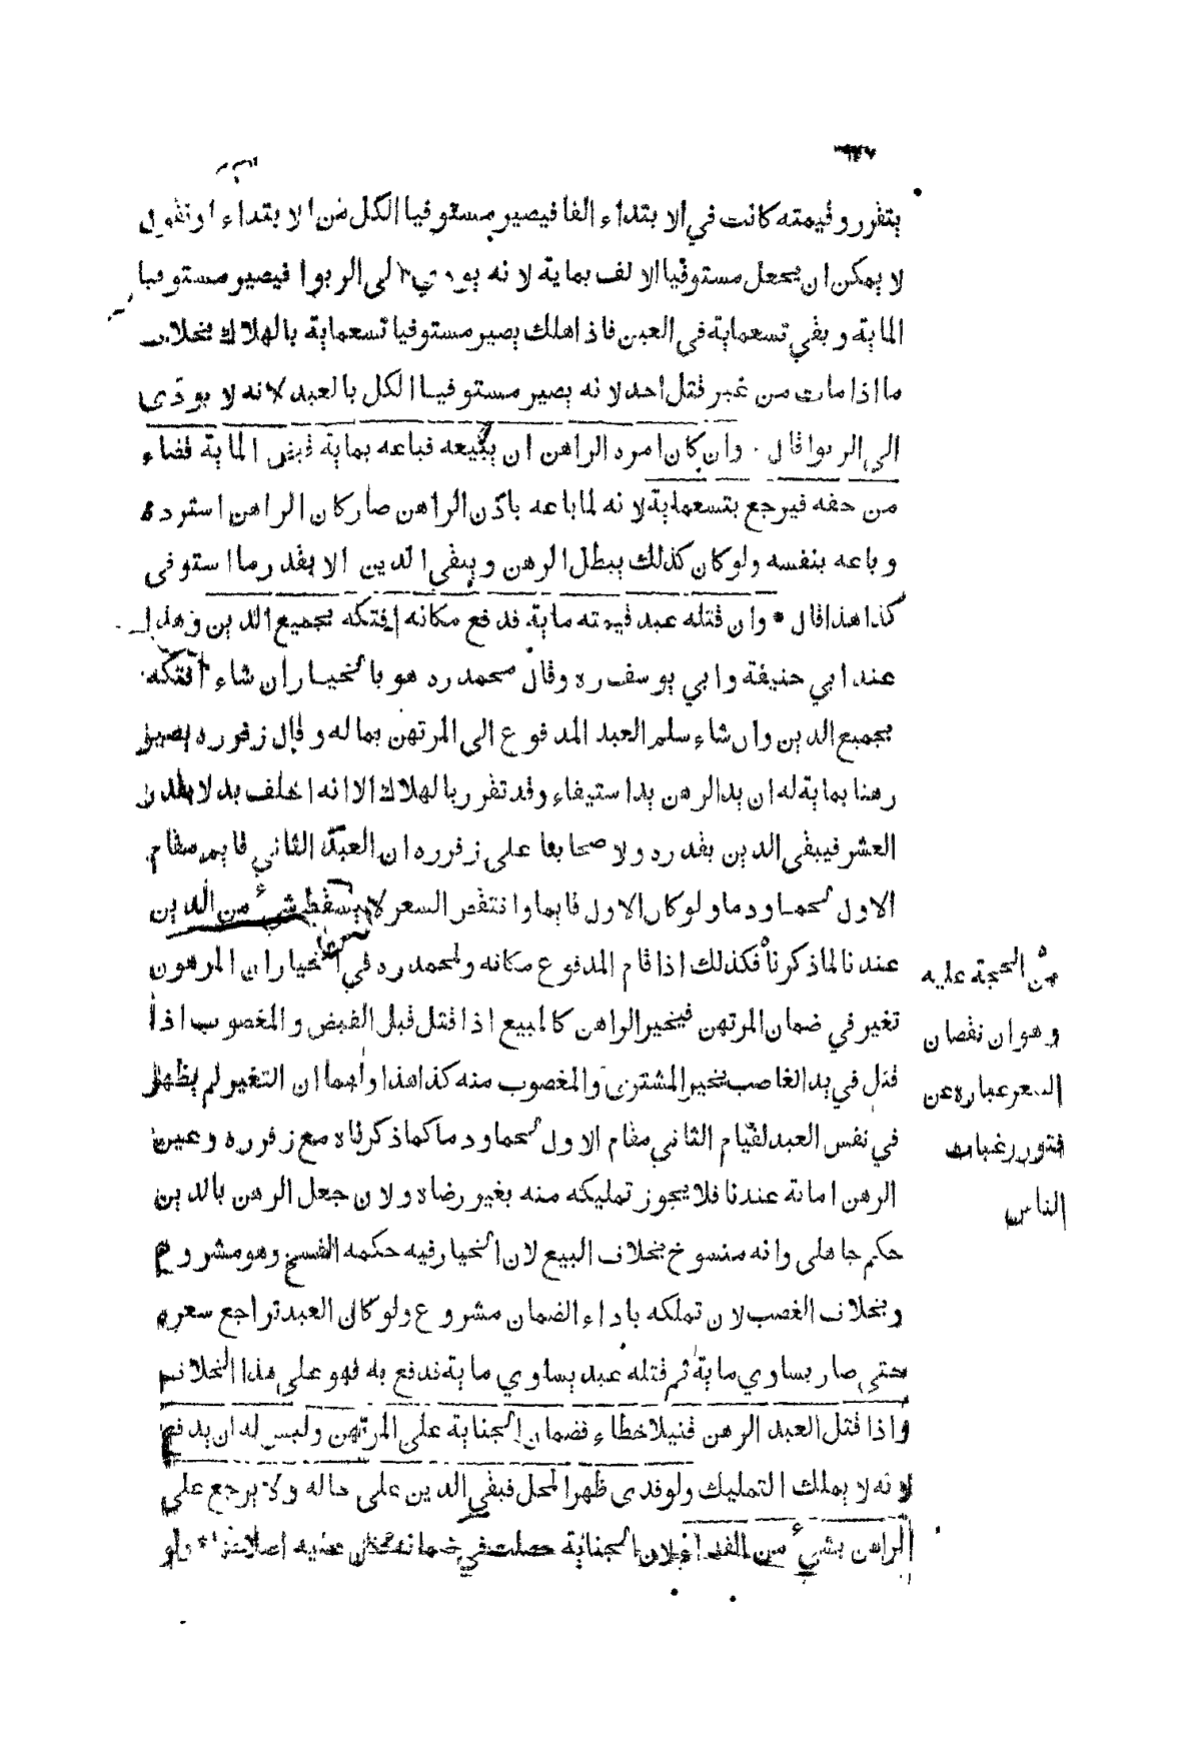 يتقرر وقيمته كانت في الابتداء الفا فيصير مستوفيا الكل من الابتداء او نقول
لا يمكن ان يجعل مستوفيا الالف بماية لانه يودي الى الربوا فيصير مستوفيا
الماية وبقي تسعماية في العين فاذا هلك يصير مستوفيا تسعماية بالهلاك بخلاف
ما اذا مات من غير قتل احد لانه يصير مستوفيا الكل بالعبد لانه لا يودى
الى الربوا قال وان كان امره الراهن ان يبيعه فباعه بماية قبض الماية قضاء
من حقه فيرجع بتسعماية لانه لما باعه باذن الراهن صار كان الراهن استرده
وباعه بنفسه ولو كان كذلك يبطل الرهن ويبقى الدين الا بقدر ما استوفى
كذا هذا قال * وان قتله عبد قيمته ماية فدفع مكانه افتكه بجميع الدين وهذا
عند ابي حنيفة وابي يوسف ره وقال محمد ره هو بالخيار ان شاء افتكه
بجميع الدين وان شاء سلم العبد المدفوع الى المرتهن بماله وقال زفر ره يصير
رهنا بماية له ان يد الرهن يد استيفاء وقد تقرر بالهلاك الا انه اخلف بدلا بقدر
العشر فيبقى الدين بقدره ولاصحابنا على زفر ره ان العبد الثاني قايم مقام
الاول لحما ودما ولو كان الاول قايما وانتقص السعر لا يسقط شيء من الدين
عندنا لما ذكرنا فكذلك اذا قام المدفوع مكانه ولمحمد ره في الخيار ان المرهون
تغير في ضمان المرتهن فيخير الراهن كالمبيع اذا قتل قبل القبض والمغصوب اذا
قتل في يد الغاصب يخير المشتري والمغصوب منه كذا هذا ولهما ان التغير لم يظهر
في نفس العبد لقيام الثاني مقام الاول لحما ودما كما ذكرناه مع زفر ره وعين
الرهن امانة عندنا فلا يجوز تمليكه منه بغير رضاه ولان جعل الرهن بالدين
حكم جاهلى وانه منسوخ بخلاف البيع لان الخيار فيه حكمه الفسخ وهو مشروع
وبخلاف الغصب لان تملكه باداء الضمان مشروع ولو كان العبد تراجع سعره
حتى صار يساوي ماية ثم قتله عبد يساوي ماية فدفع به فهو على هذا الخلاف
واذا قتل العبد الرهن قتيلا خطاء فضمان الجناية على المرتهن وليس له ان يدفع
لانه لا يملك التمليك ولو فدى ظهر المحل فبقي الدين على حاله ولا يرجع على
الراهن بشيء من الفداء لان الجناية حصلت في ضمانه فكان عليه اصلاحها * ولو
من الحجة عليه
وهو ان نقصان
السعر عبارة عن
فتور رغبات
الناس